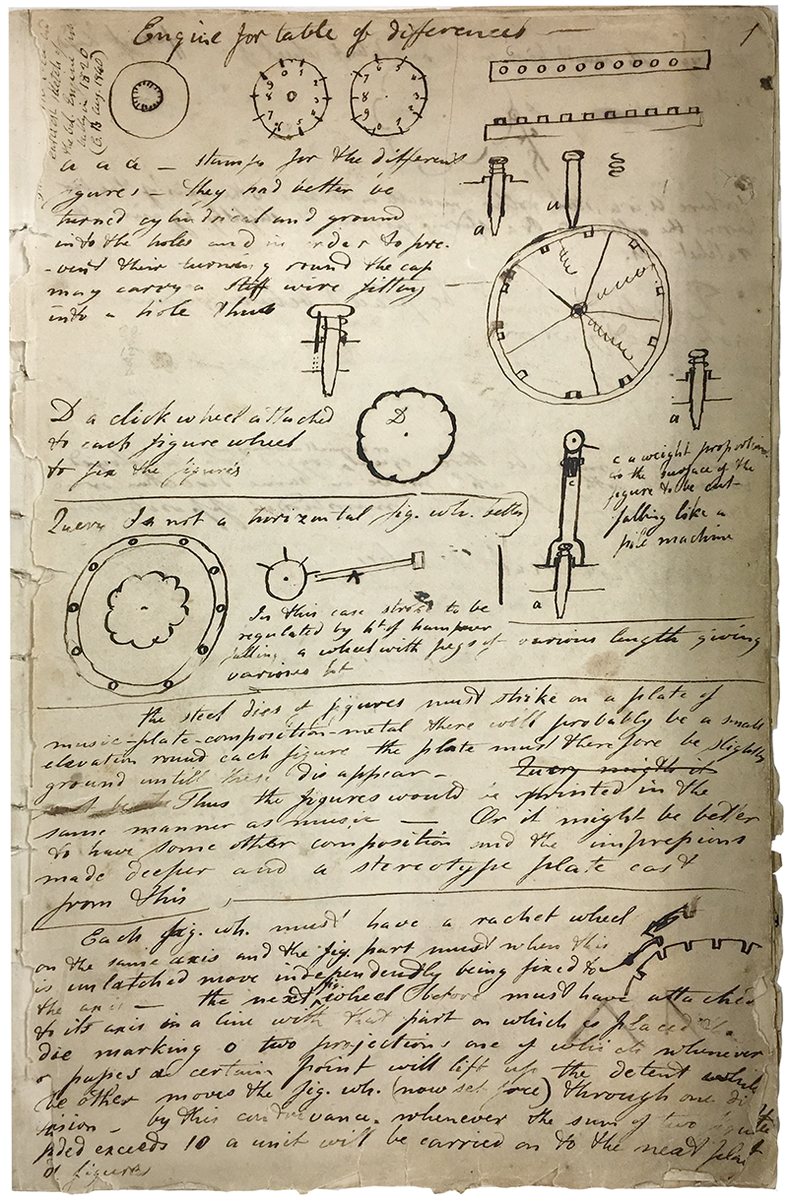 Engine for table of differences —
1
a a a — stamps for the different
figures — they had better be
turned cylindrical and ground
into the holes and in order to pre-
-vent their turning round the cap
may carry a stiff wire fitting
into a hole thus
a
a
a
D a click wheel attached
to each figure wheel
to fix the figures
D
c a weight proportion.
to the surface of the
figure to be cut
falling like a
pile machine
c
a
Query Is not a horizontal fig. wh. better
In this case stroke to be
regulated by ht of hammer
falling a wheel with pegs of various length giving
various ht
the steel dies of figures must strike on a plate of
music-plate-composition-metal there will probably be a small
elevation round each figure the plate must therefore be slightly
ground untill these disappear — Query might it
Thus the figures would be printed in the
same manner as music — Or it might be better
to have some other composition and the impressions
made deeper and a stereotype plate cast
from this
Each fig. wh. must have a rachet wheel
on the same axis and the fig. part must when this
is unlatched move independendly being fixed to
the axis — the next fig. wheel before must have attached
to its axis in a line with that part on which is placed
die marking 0 two projections one of which whenever
0 passes a certain point will lift up the detent while
the other moves the fig. wh. (now set free) through one di
vision — by this contrevance whenever the sum of two figures
added exceeds 10 a unit will be carried on to the next place
of figures